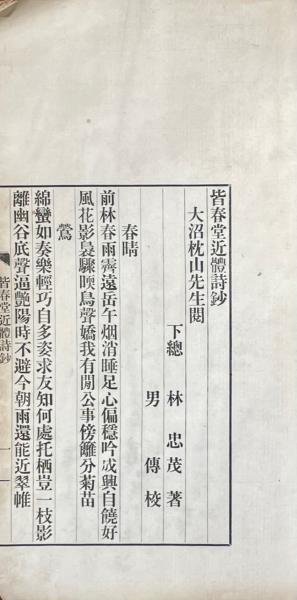 皆春堂近體詩鈔
大沼枕山先生閱
下總 林 忠茂 著
男 傳 校
春晴
前林春雨霽遠岳午烟消睡足心偏穩吟成興自饒好
風花影裊驟暎鳥聲嬌我有閒公事傍籬分菊苗
鶯
綿蠻如奏樂輕巧自多姿求友知何處托栖豈一枝影
離幽谷底聲逼艷陽時不避今朝雨還能近翠帷
皆春堂近體詩鈔 一